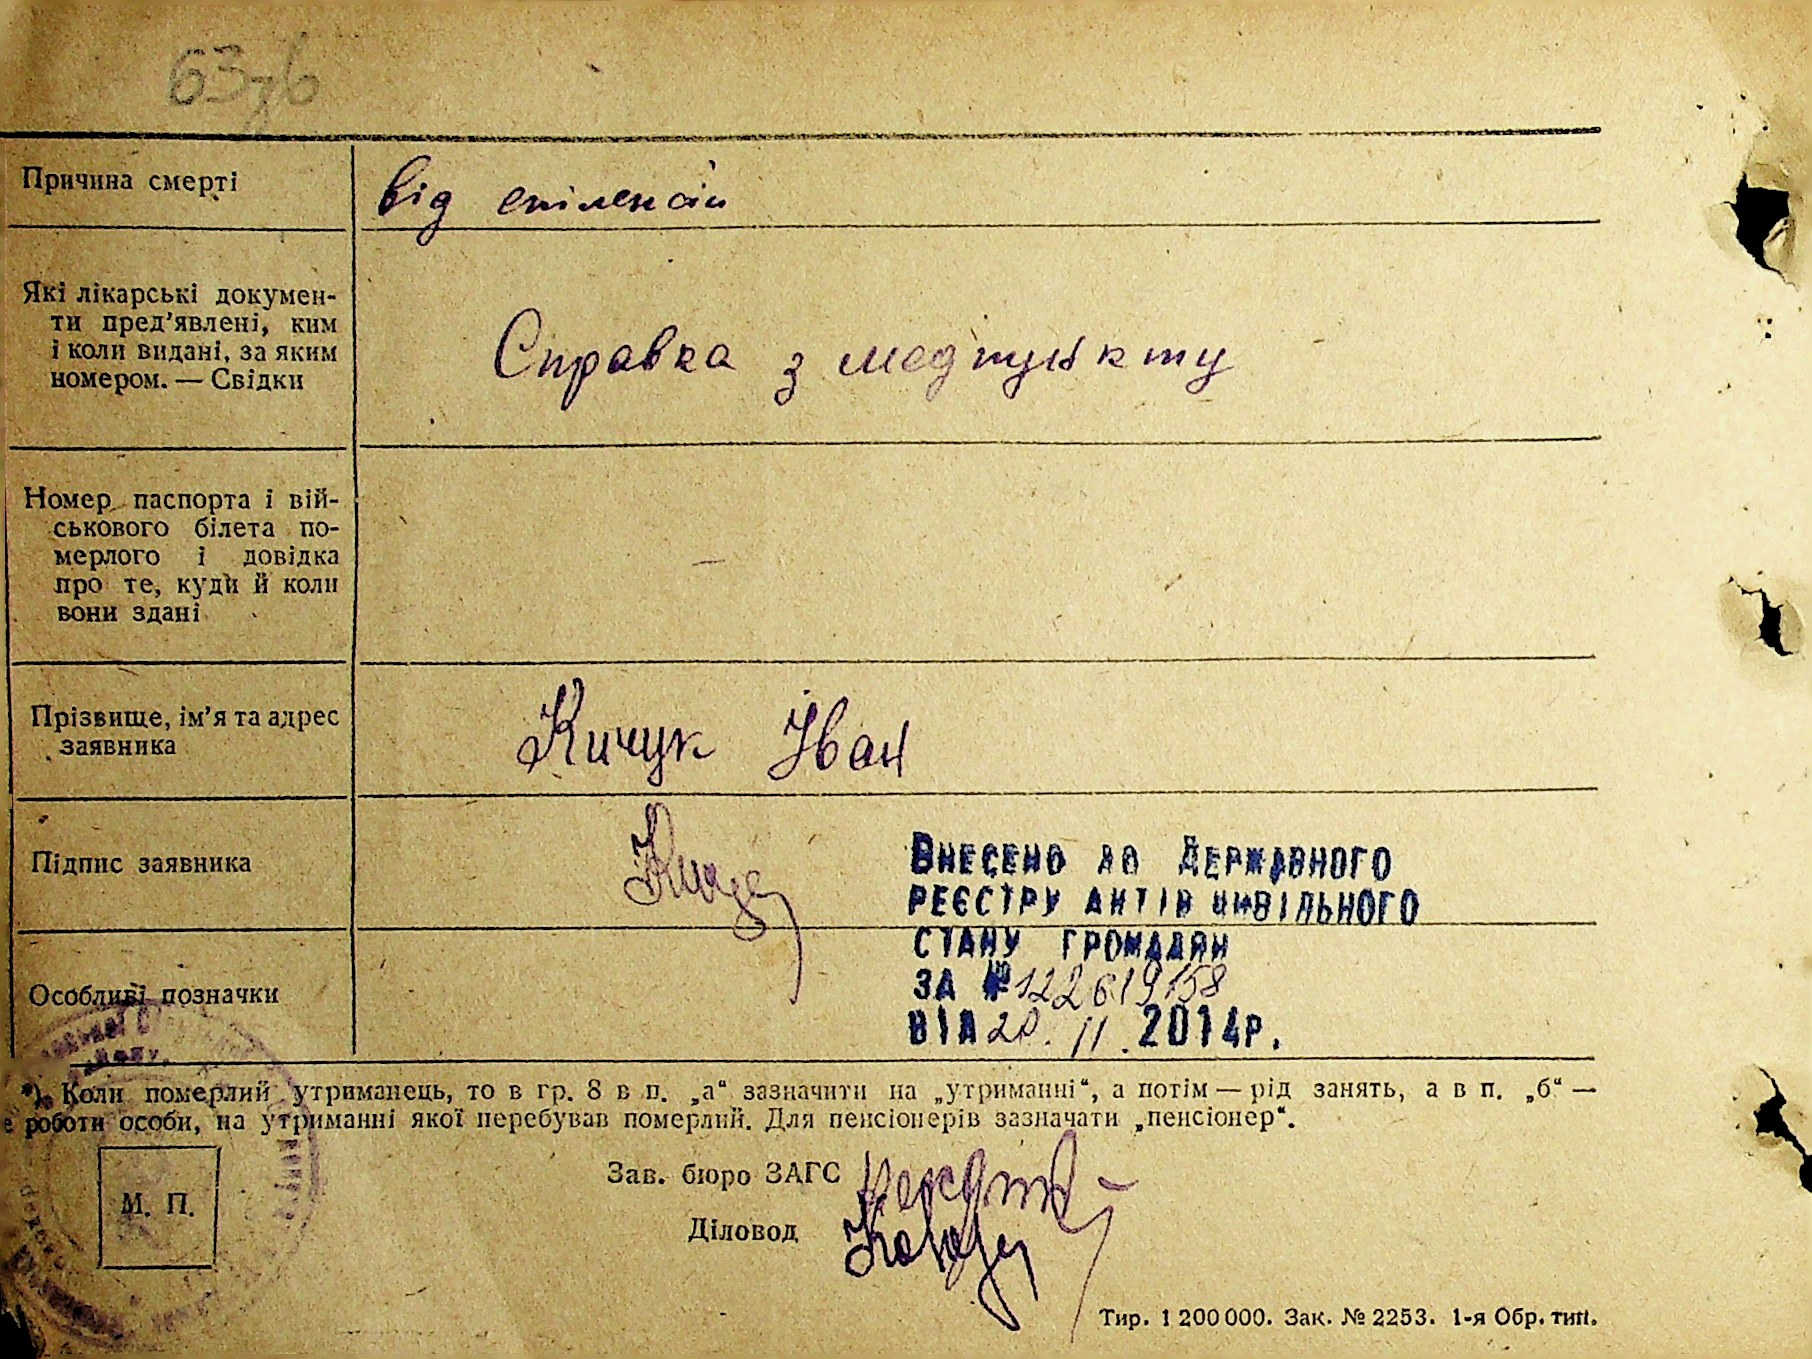 63зв
Причина смерті
від епілепсії
Які лікарські докумен-
ти пред'явлені, ким
і коли видані, за яким
номером. — Свідки
Справка з медпункту
Номер паспорта і вій-
ськового білета по-
мерлого і довідка
про те, куди й коли
вони здані
—
Прізвище, ім'я та адрес
заявника
Кичук Іван
Підпис заявника
Внесено до Державного
реєстру актів цивільного
стану громадян
за № 122619158
від 20. 11. 2014р.
Особливі позначки
*) Коли померлий утриманець, то в гр. 8 в п. „а“ зазначити на „утриманні“, а потім — рід занять, а в п. „б“ —
е роботи особи, на утриманні якої перебував померлий. Для пенсіонерів зазначати „пенсіонер“.
Зав. бюро ЗАГС
М. П.
Діловод
Тир. 1 200 000. Зак. № 2253. 1-я Обр. тип.